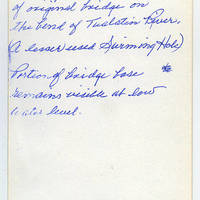 of original bridge on
the bend of Tualatin River.
(A lesser used Swimming Hole)
Portion of bridge base
remains visible at low
water level.